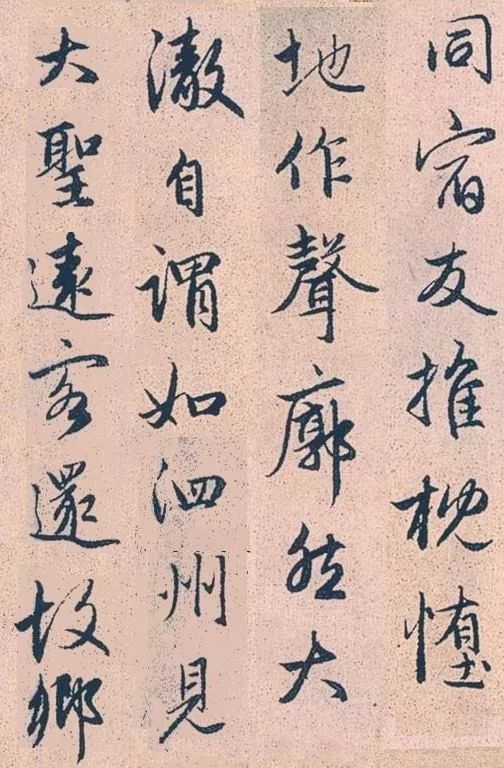 同宿友推枕墮
地作聲廓然大
澈自謂如泗州見
大聖遠客還故鄉